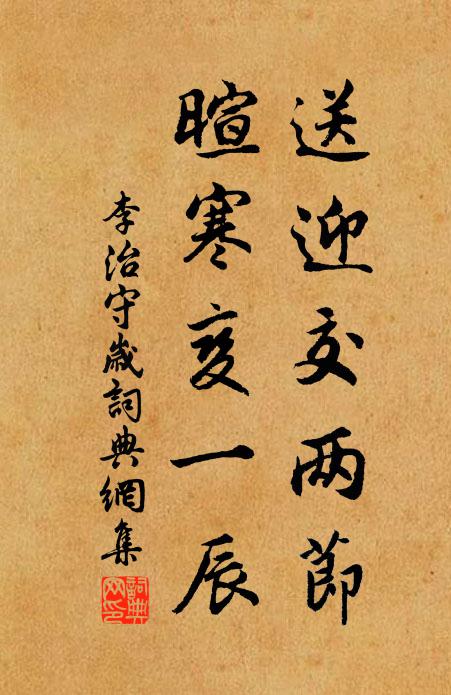 送迎交两節
暄寒变一辰
李治守歲詞典網集
詞典网印